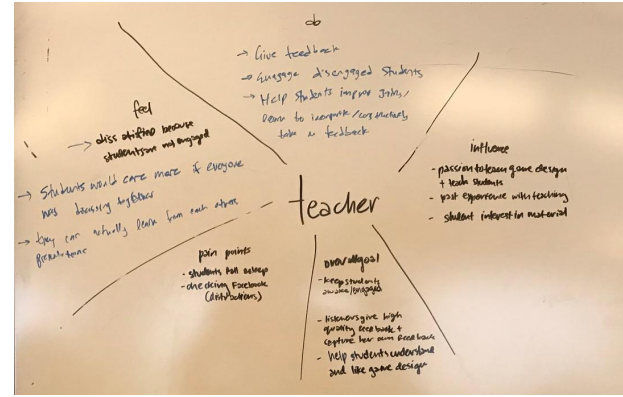 do
→ Give feedback
→ Engage disengaged students
→ Help students improv skills/
learn to incorporate/constructively
take in feedback
feel
→ dissatisfied because
students are not engaged
→ Students would care more if everyone
was focusing together
→ they can actually learn from each others
teacher
influence
- passion to learn game design
+ teach students
- past experience with teaching
- student interest in material
pain points
- students fall asleep
- checking Facebook
(distractions)
overall goal
- keep students
awake/engaged
- listeners give high
quality feedback +
capture her own feedback
- help students understand
and like game design